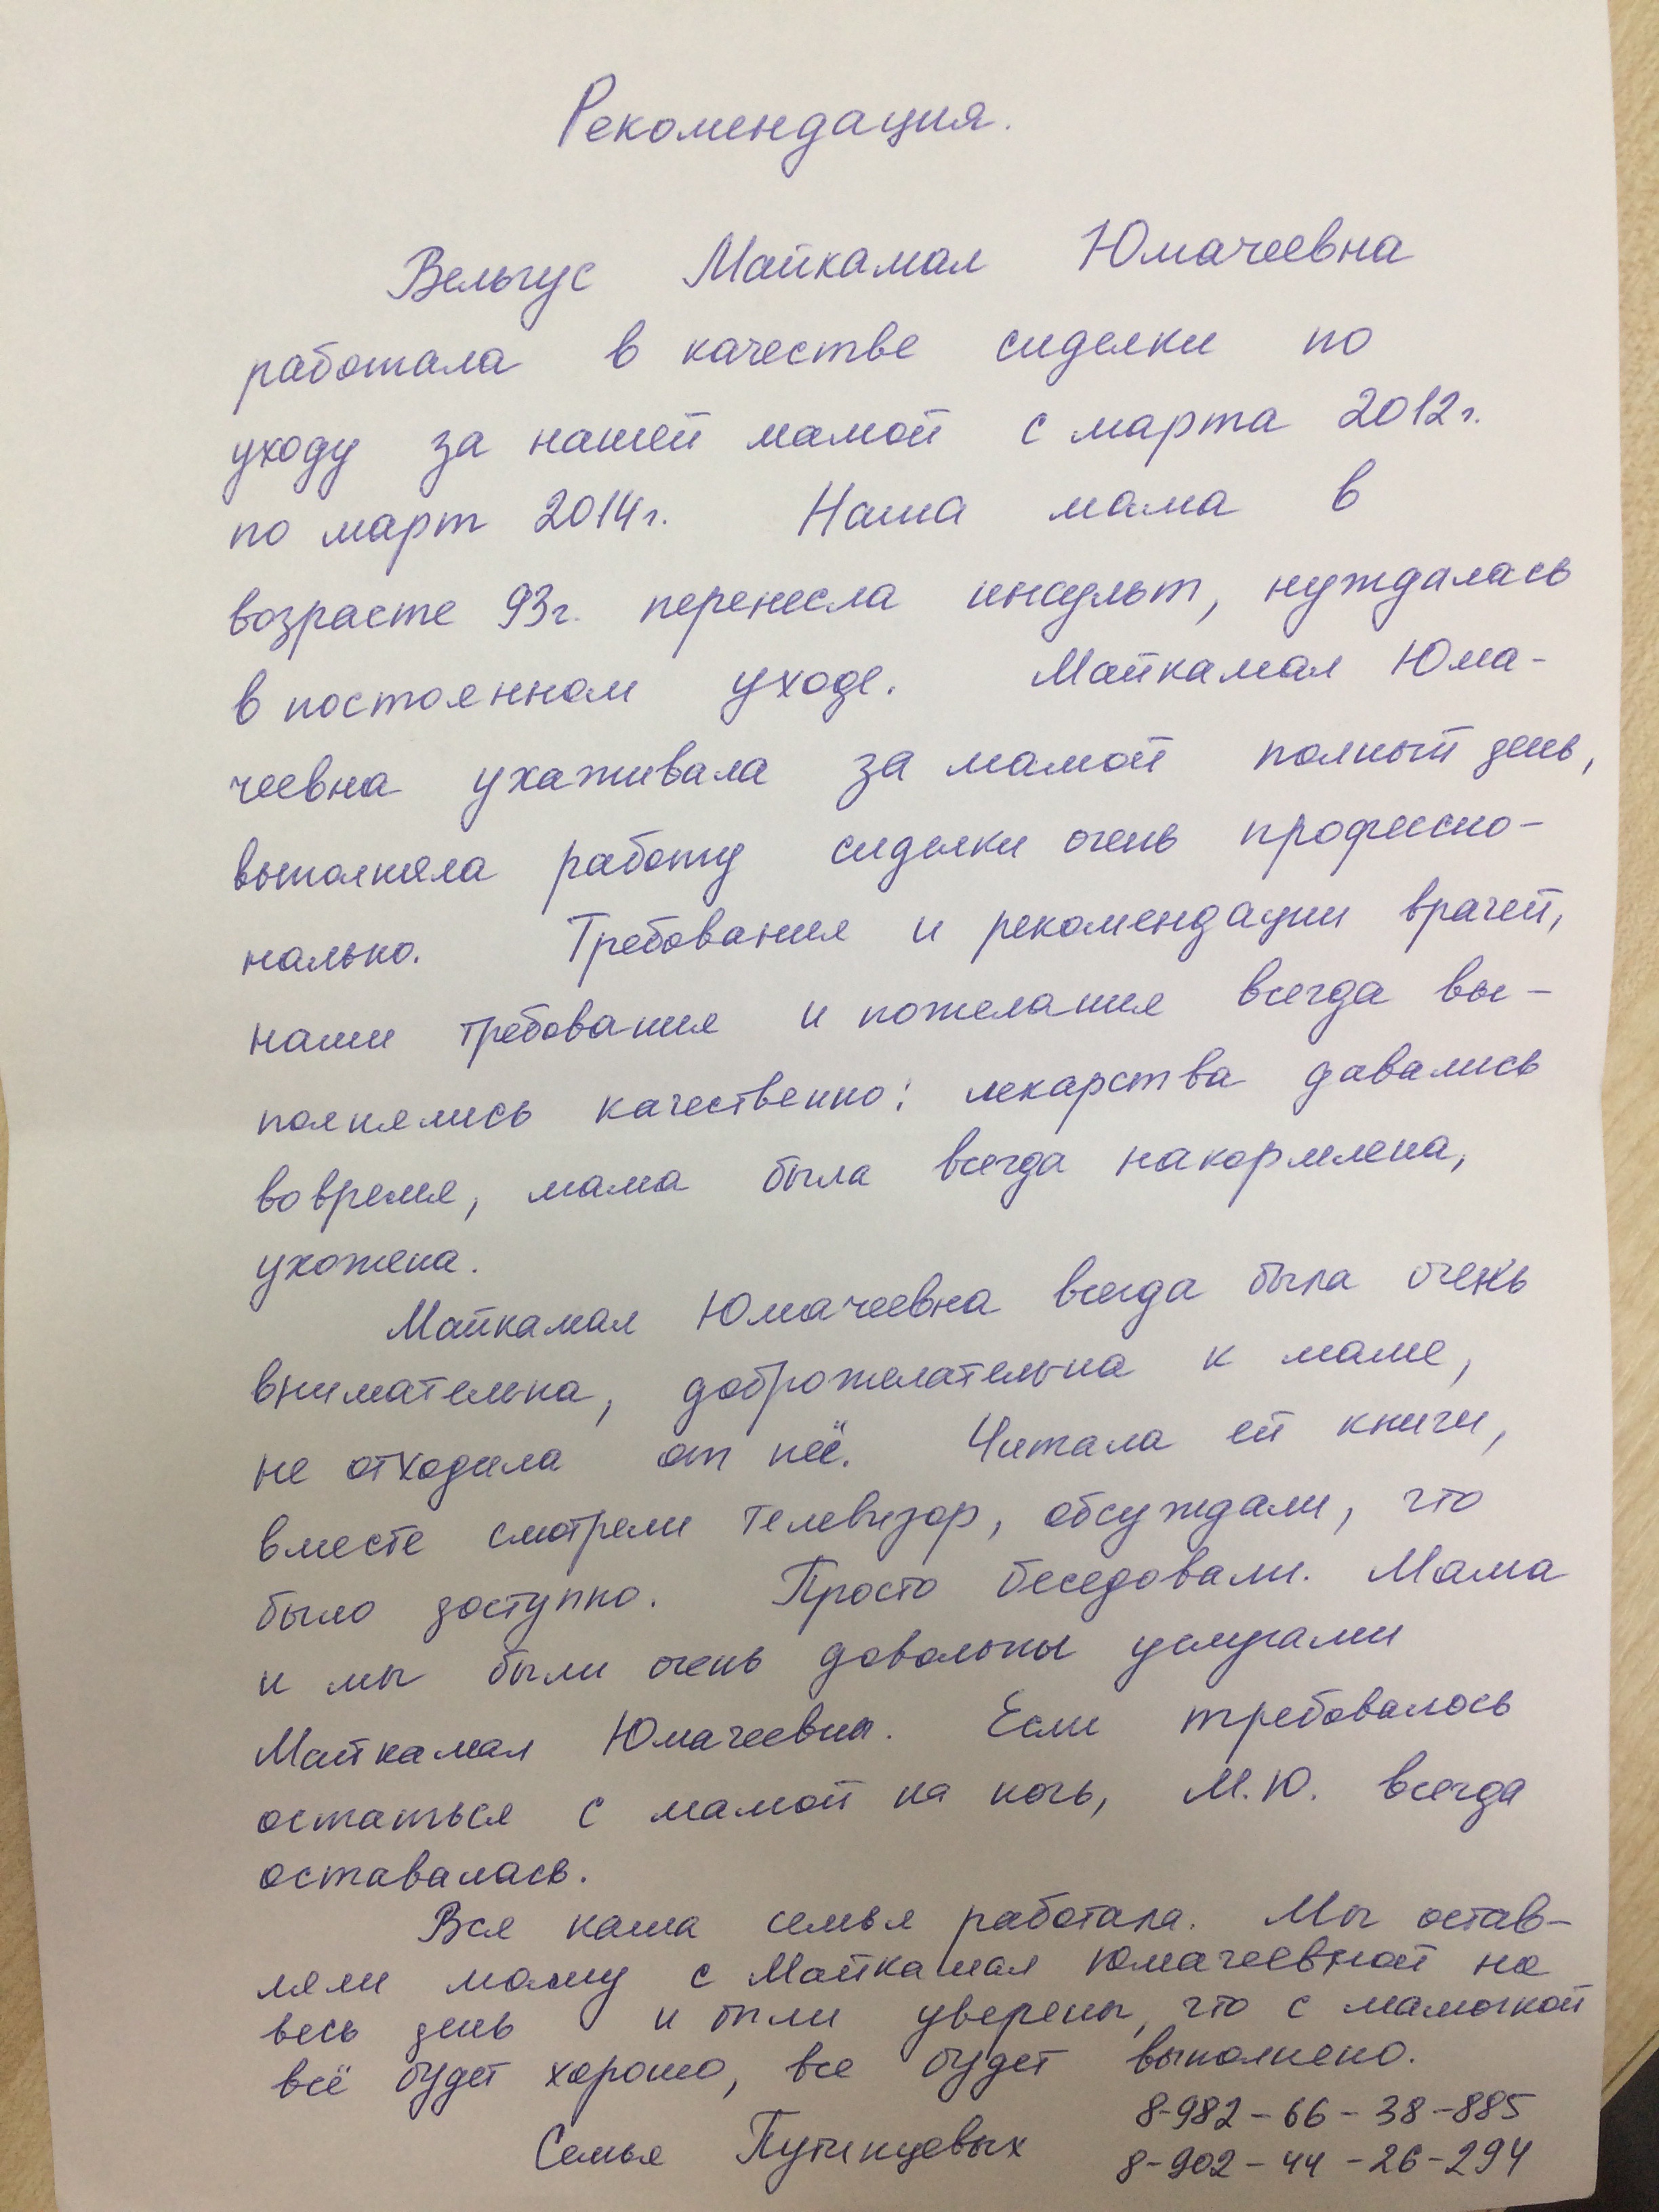 Рекомендация.
Вельгус Майкамал Юмачеевна
работала в качестве сиделки по
уходу за нашей мамой с марта 2012г.
по март 2014г. Наша мама в
возрасте 93г. перенесла инсульт, нуждалась
в постоянном уходе. Майкамал Юма-
чеевна ухаживала за мамой полный день,
выполняла работу сиделки очень професско-
нально. Требования и рекомендации врачей,
нами требования и пожелания всегда вы-
полнялись качественно: лекарства давались
вовремя, мама была всегда накормлена,
ухожена.
Майкамал Юмачеевна всегда была очень
внимательна, доброжелательна к маме,
не отходила от неё. Читала ей книги,
вместе смотрели телевизор, обсуждали, что
было доступно. Просто беседовали. Мама
и мы были очень довольны услугами
Майкамал Юмачеевны. Если требовалось
остаться с мамой на ночь, М.Ю. всегда
оставалась.
Вся наша семья работала. Мы остав-
ляли маму с Майкамал Юмачеевной на
весь день и были уверены, что с мамочкой
всё будет хорошо, все будет выполнено.
8-982-66-38-885
Семья Путинцевых 8-902-44-26-294